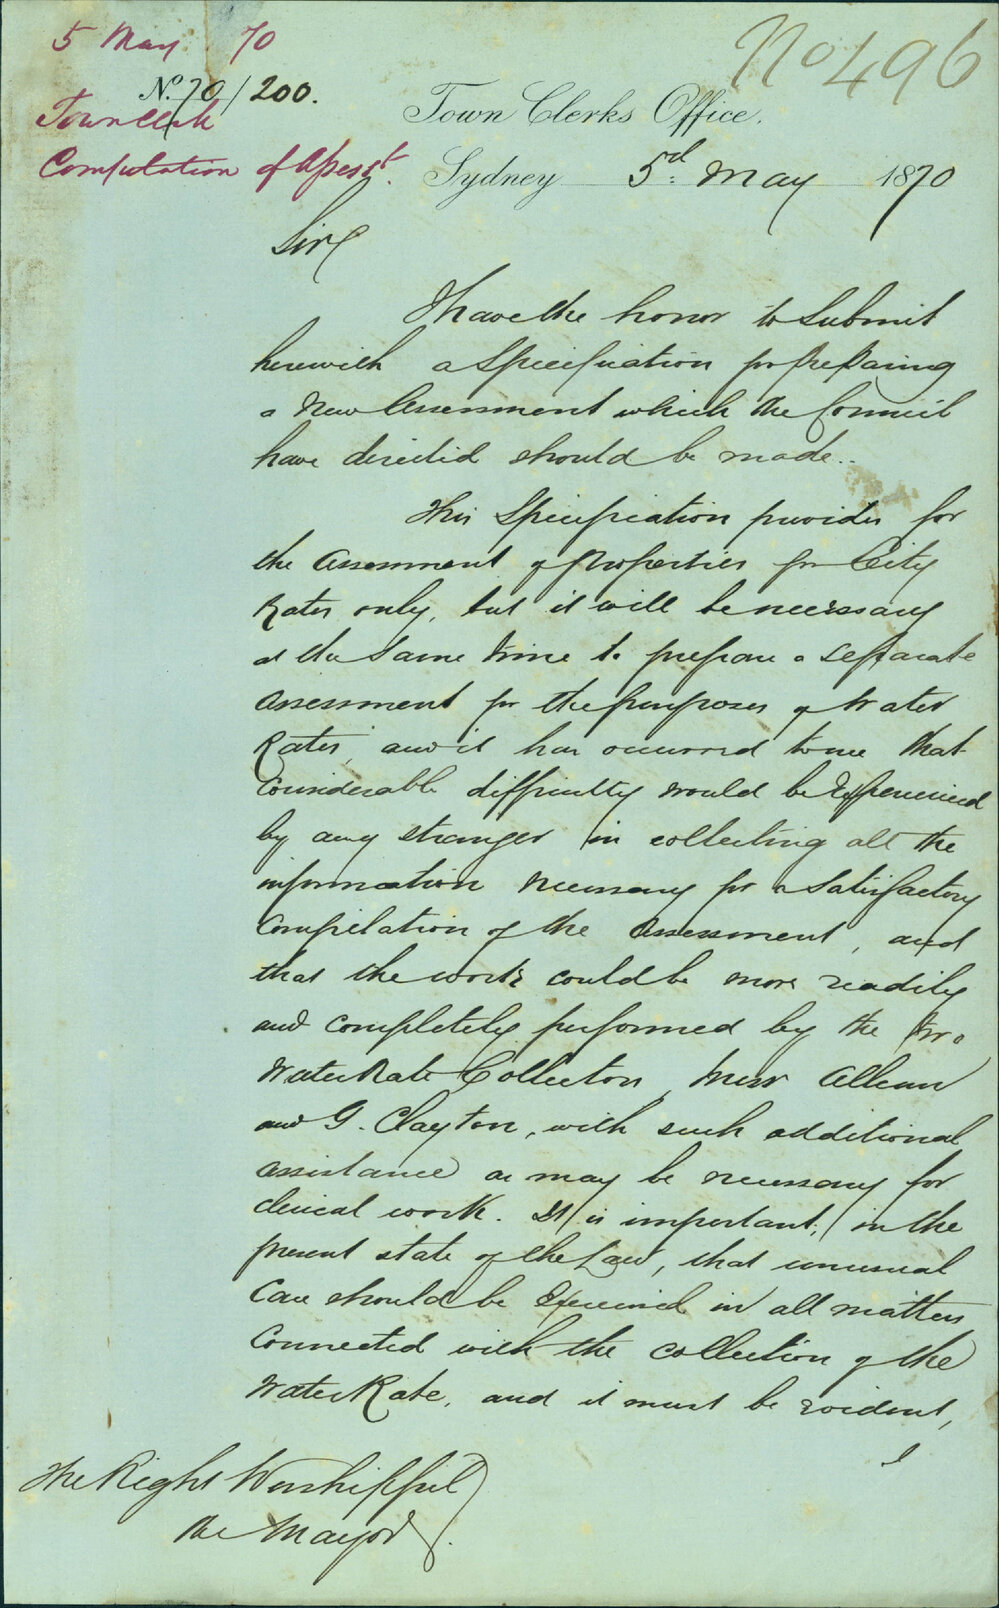 5 May 70
No 496
No. 70/200.
Town Clerk
Town Clerks Office.
Computation of Assesst.
Sydney 5d. May 1870
Sir
I have the honor to submit
herewith a Specification for preparing
a New Assessment which the Council
have directed should be made.
This Specification provides for
the Assessment of properties for City
Rates only, but it will be necessary
at the same time to prepare a separate
assessment for the purposes of Water
Rates, and it has occurred to me that
considerable difficulty would be Experienced
by any stranger in collecting all the
information necessary for a satisfactory
Compilation of the Assessment, and
that the work could be more readily
and completely performed by the two
Water Rate Collectors, Messrs
and G. Clayton, with such additional
assistance as may be necessary for
clerical work. It is important, in the
present state of the Law, that unusual
Care should be Exercised in all matters
Connected with the collection of the
Water Rate, and it must be evident,
The Right Worshipful
the Mayor.